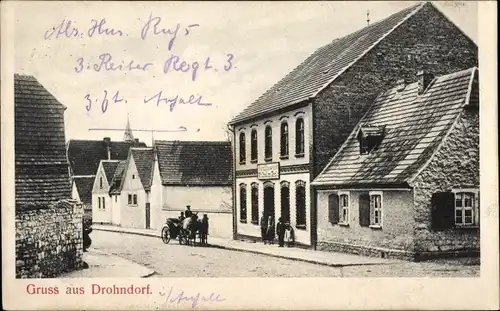 Abs. Hus. Ruß
3. Reiter Regt. 3.
3. Zt. Anhalt
Gruss aus Drohndorf. i/Anhalt